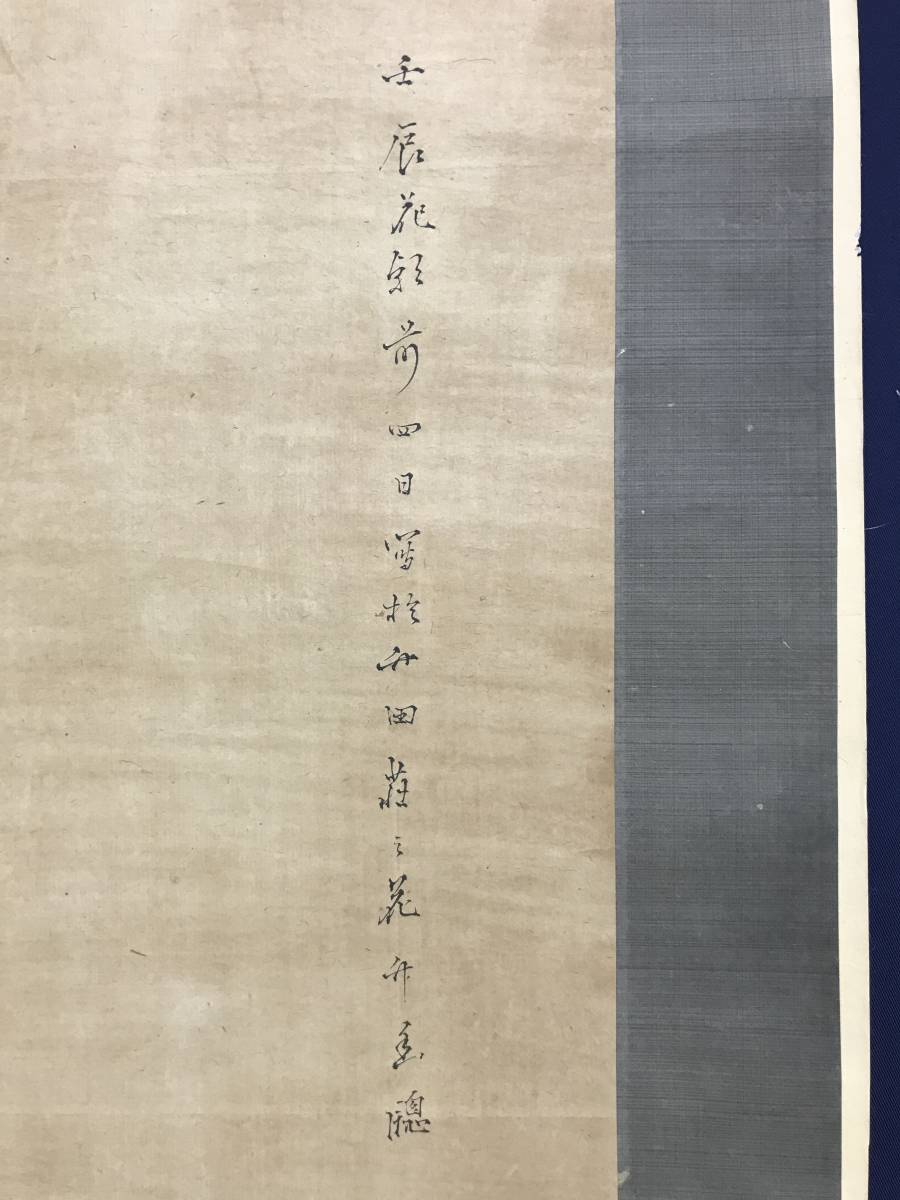 壬辰花朝前四日寫於竹田莊之花竹幽䆫